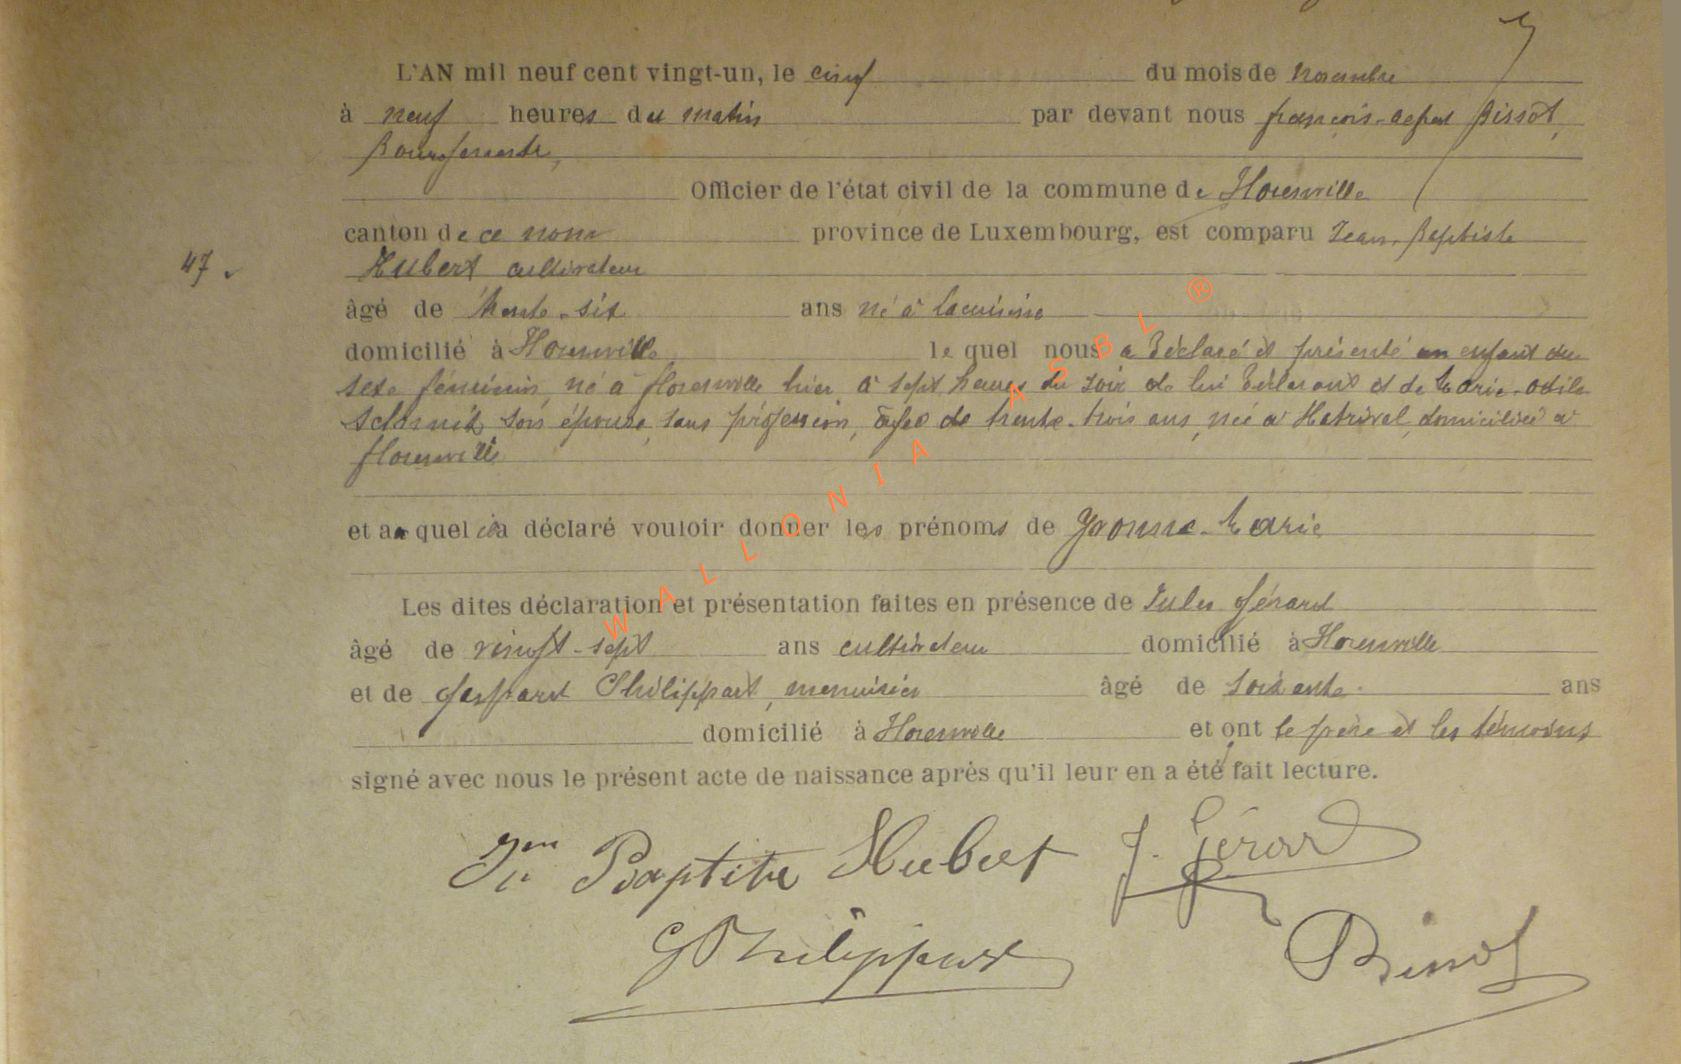 L'AN mil neuf cent vingt-un, le cinq du mois de novembre
à neuf heures du matin par devant nous françois Bissot,
Bourgmestre,
Officier de l'état civil de la commune de Florenville
canton de ce nom province de Luxembourg, est comparu Jean, Baptiste
47. Hubert cultivateur
âgé de trente-six ans né à Lacuisine
domicilié à Florenville lequel nous a déclaré et présenté un enfant du
sexe féminin, né à florenville hier à sept heures du soir de lui déclarant et de Marie-Odile
son épouse, sans profession, âgée de trente-trois ans, née à Hatrival, domiciliée à
florenville
et auquel il a déclaré vouloir donner les prénoms de Yvonne-Marie
Les dites déclaration et présentation faites en présence de Jules Gérard
âgé de vingt-sept ans cultivateur domicilié à Florenville
et de Gaspard Philippart, menuisier âgé de soixante ans
domicilié à Florenville et ont le père et les témoins
signé avec nous le présent acte de naissance après qu'il leur en a été fait lecture.
Jn Baptiste Hubert J. Gérard
G Philippart Bissot
WALLONIA ASBL ®